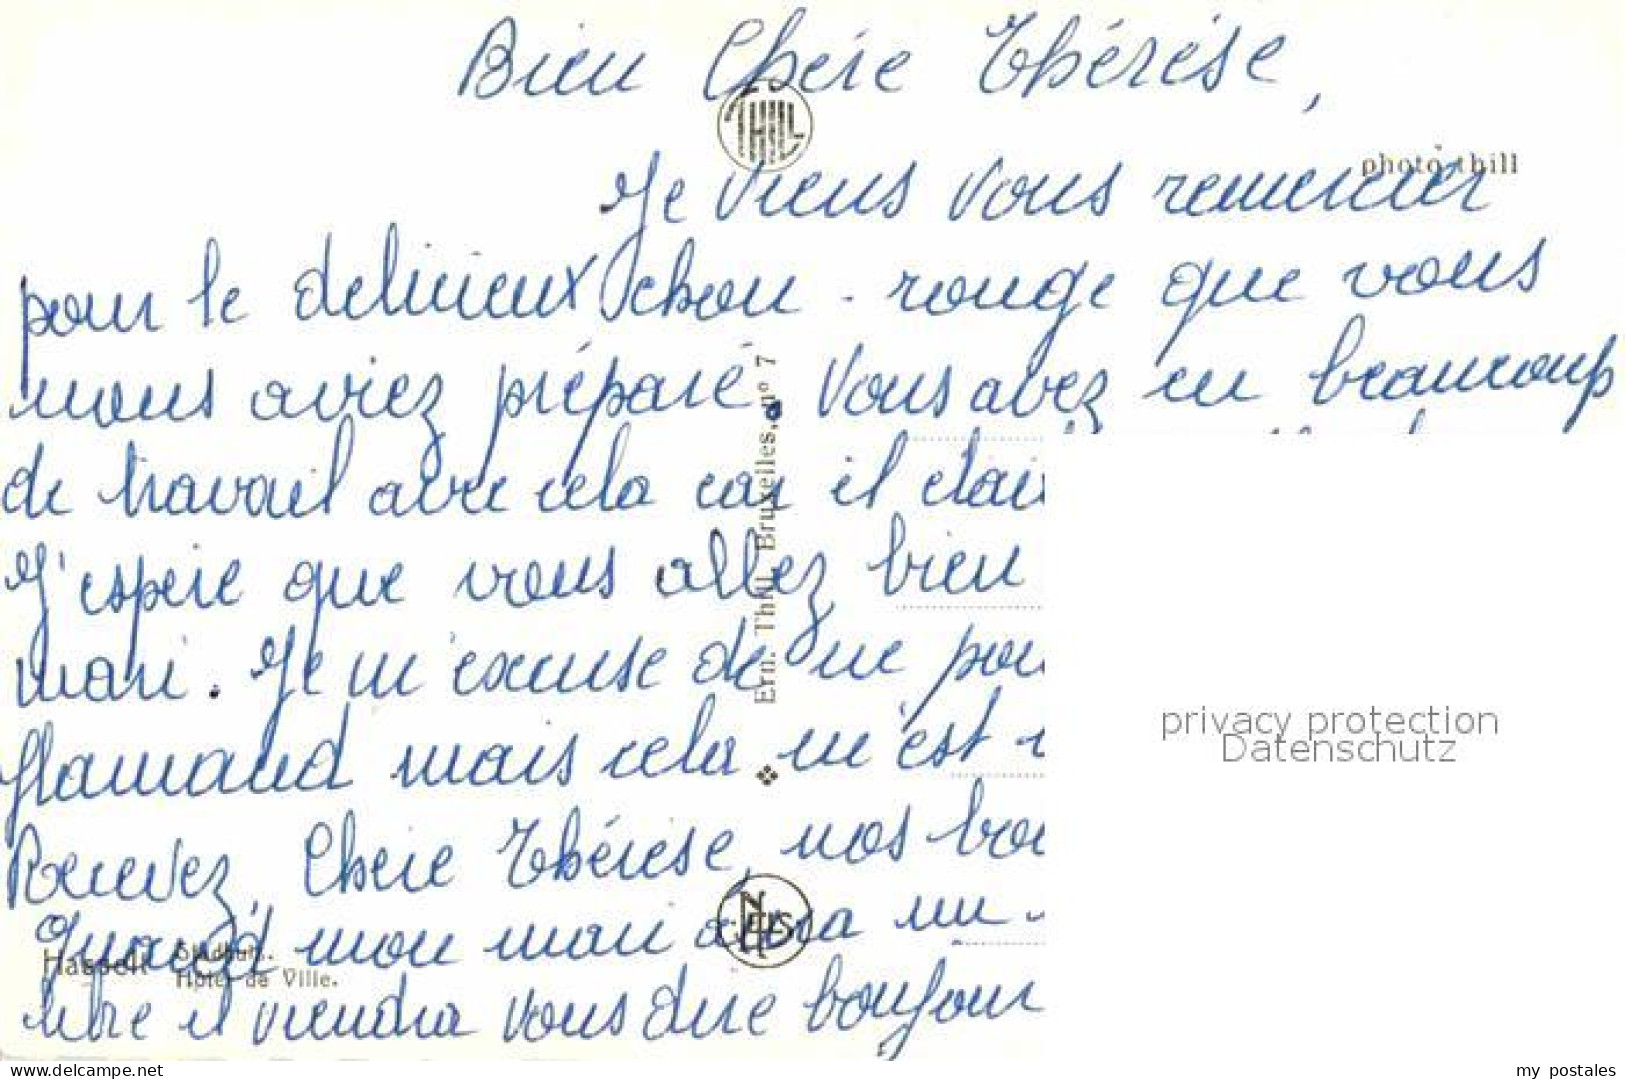 Bien Chère Thérèse,
THILL
photo thill
Je viens vous remercier
pour le delicieux chou-rouge que vous
nous aviez préparé. Vous avez eu beaucoup
de travail avec cela car il etait
J'espère que vous allez bien
mari. Je m'excuse de ne pou
flamand mais cela m'est
Recevez, Chère Thérèse, nos bo
Quand mon mari aura un
libre il viendra vous dire bonjour
Ern. Thill, Bruxelles, nº 7
NELS
Hasselt Stadhuis.
Hôtel de Ville.
privacy protection
Datenschutz
www.delcampe.net
my_postales